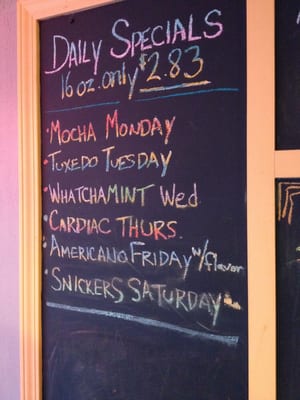 DAILY SPECIALS
16 oz. only $2.83
• MOCHA MONDAY
• TUXEDO TUESDAY
• WHATCHAMINT Wed
• CARDIAC THURS.
• AMERICANO FRIDAY w/flavor
• SNICKERS SATURDAY